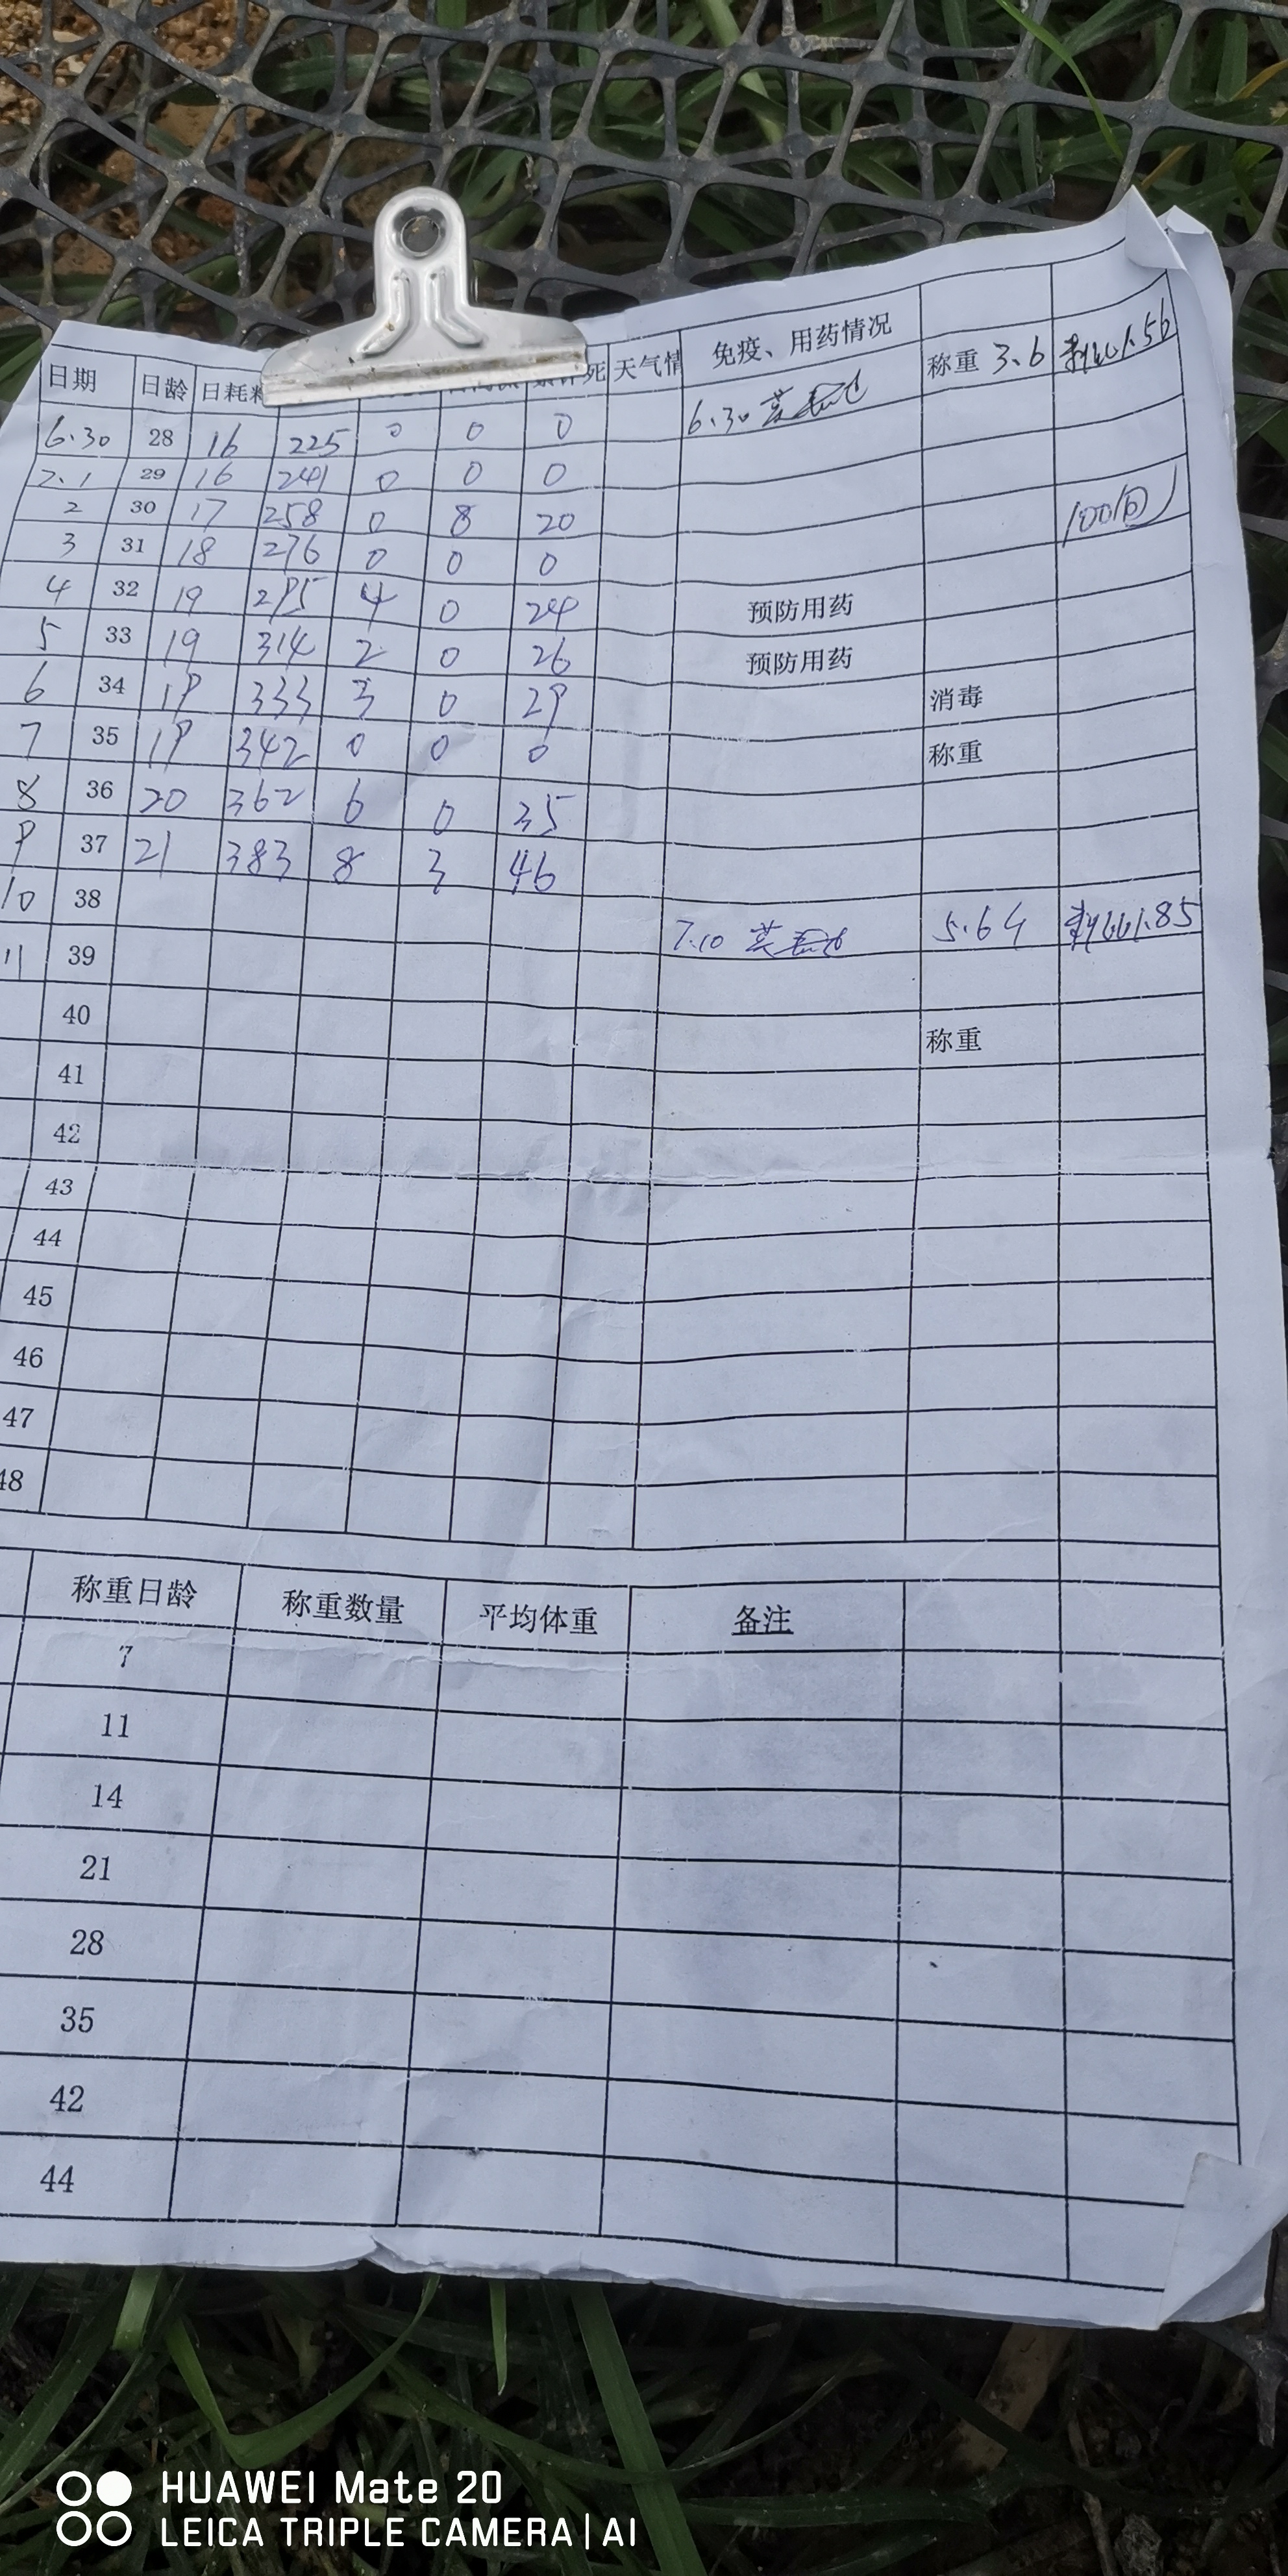 日期 日龄 日耗料 死 天气情 免疫、用药情况 称重 3.6 料比1.56
6.30 28 16 225 0 0 0 6.30
7.1 29 16 241 0 0 0
2 30 17 258 0 8 20 100包
3 31 18 276 0 0 0
4 32 19 295 4 0 24 预防用药
5 33 19 314 2 0 26 预防用药
6 34 19 333 3 0 29 消毒
7 35 19 342 0 0 0 称重
8 36 20 362 6 0 35
9 37 21 383 8 3 46
10 38 7.10 5.64 料比1.85
11 39
40 称重
41
42
43
44
45
46
47
48
称重日龄 称重数量 平均体重 备注
7
11
14
21
28
35
42
44
HUAWEI Mate 20
LEICA TRIPLE CAMERA | AI